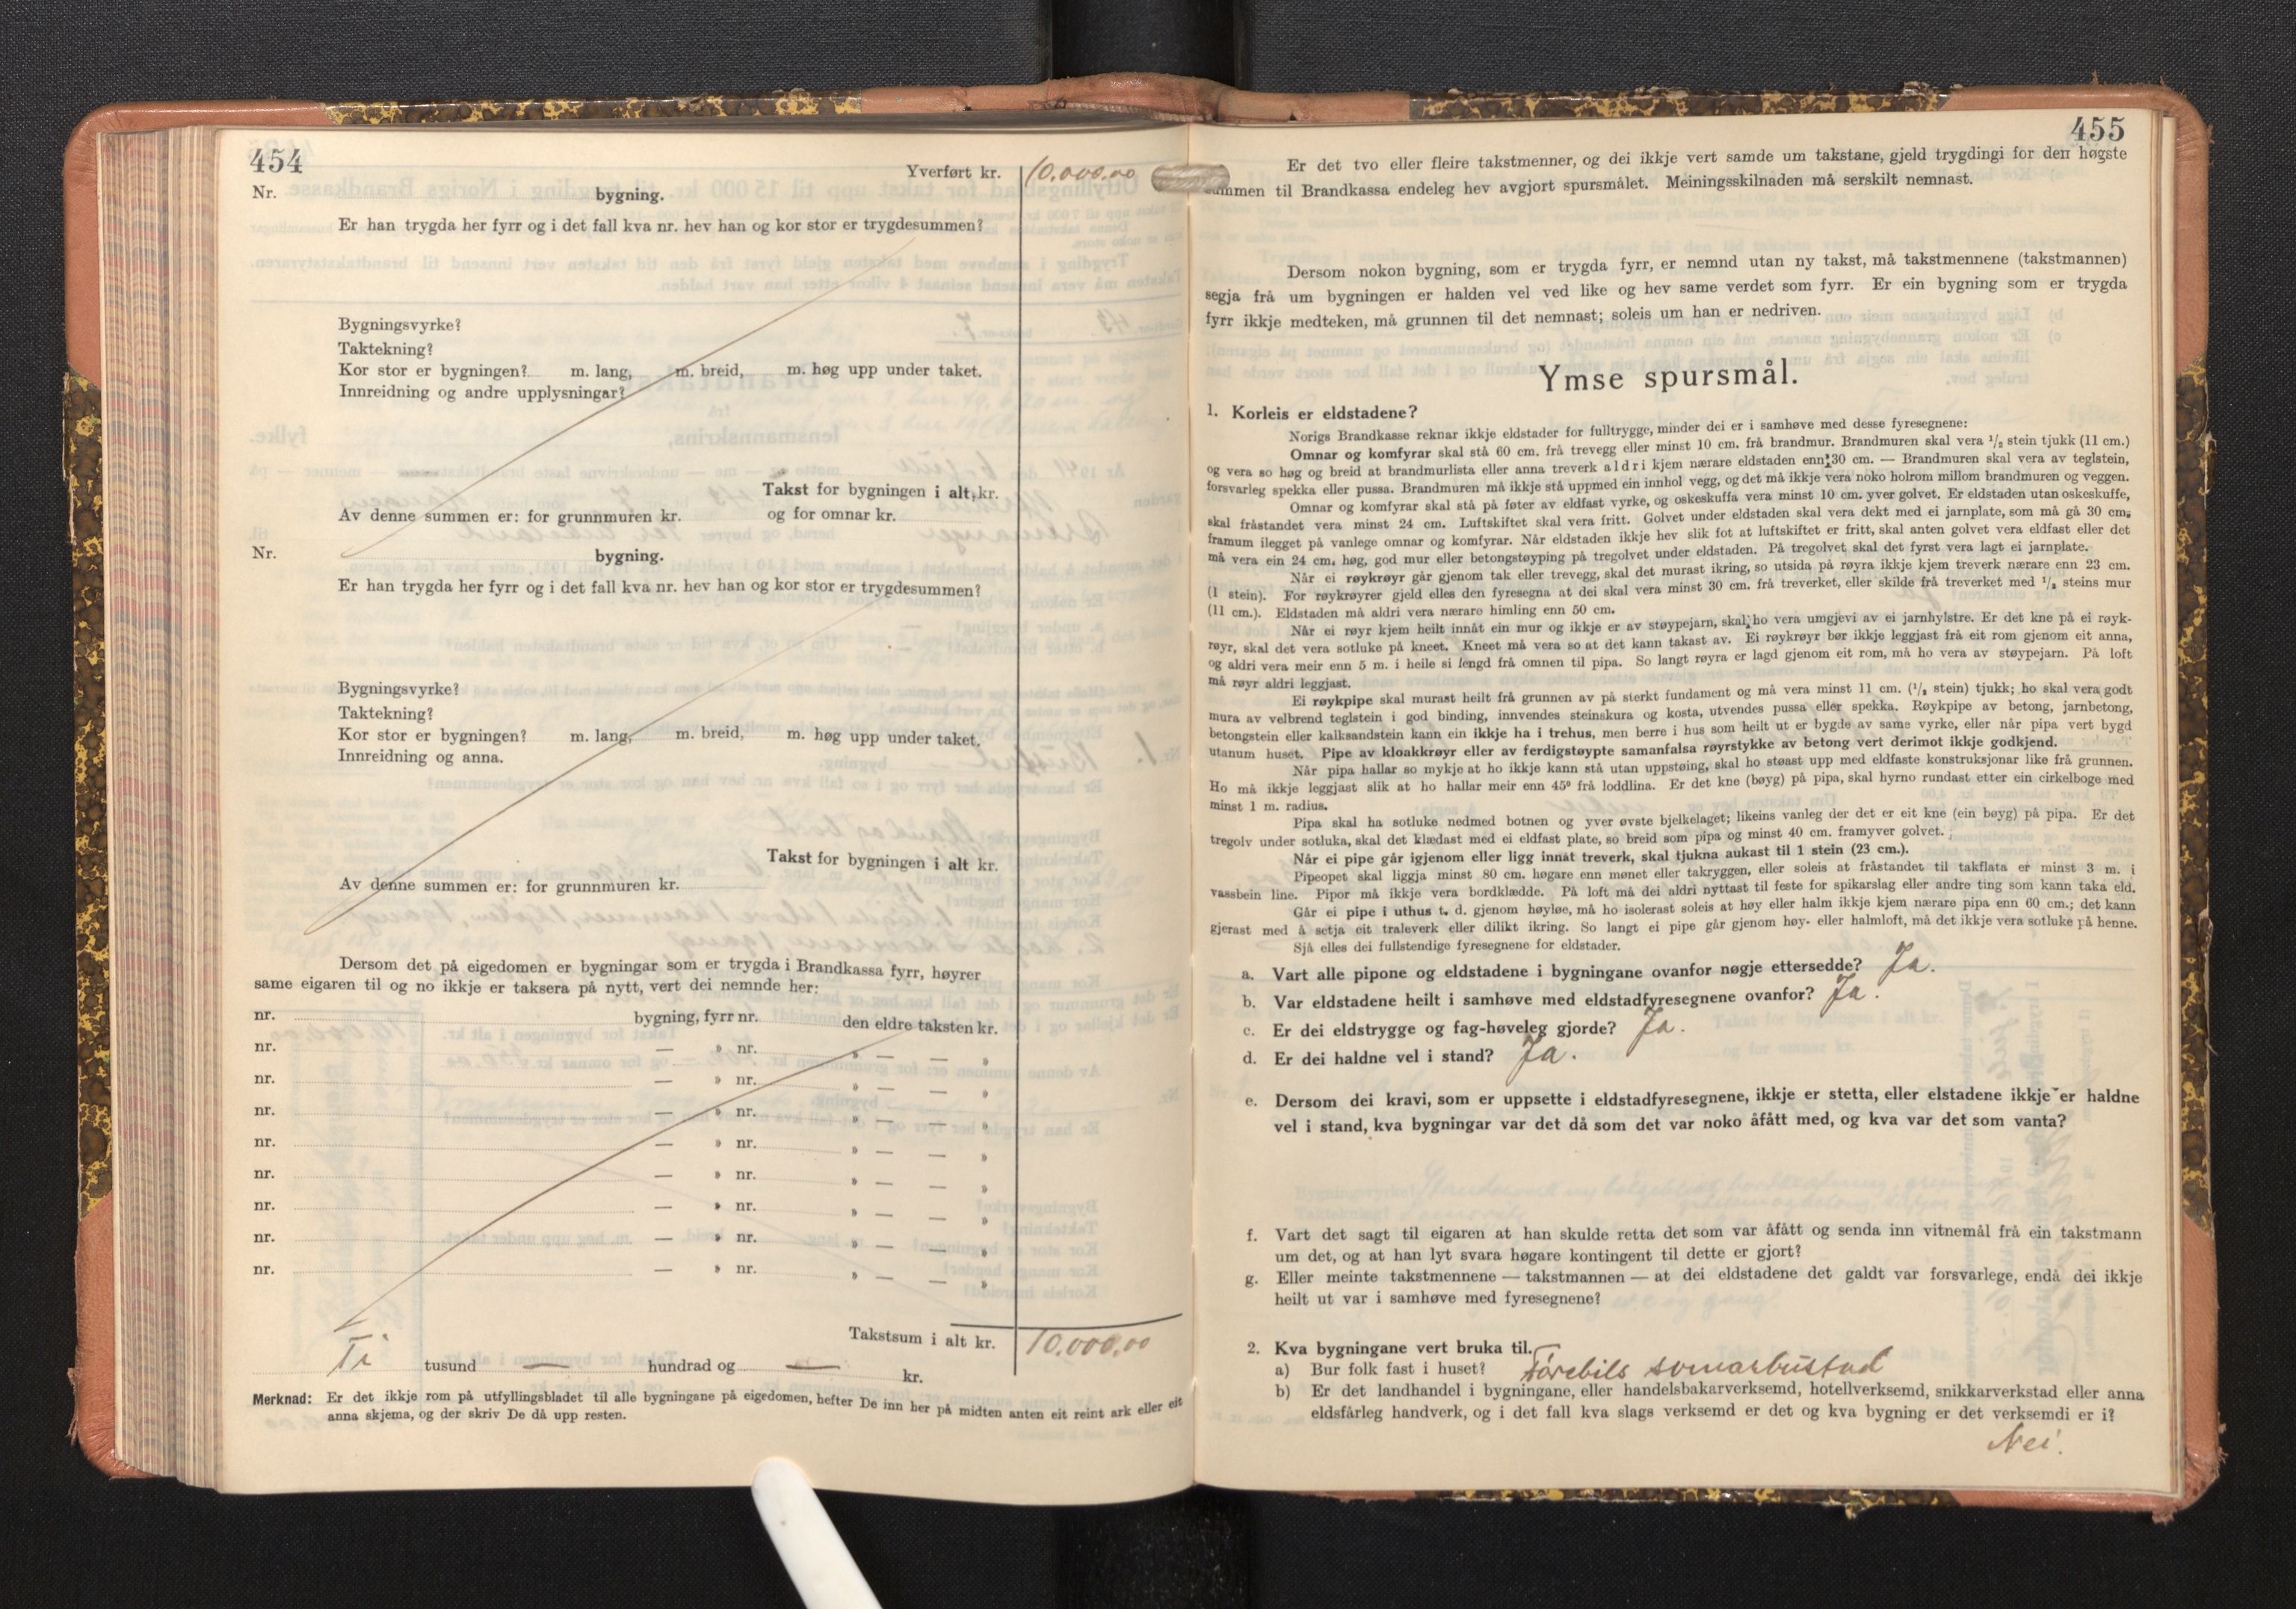 454
Yverført kr. 10.000.00
Nr. bygning.
Er han trygda her fyrr og i det fall kva nr. hev han og kor stor er trygdesummen?
Bygningsvyrke?
Taktekning?
Kor stor er bygningen? m. lang, m. breid, m. høg upp under taket.
Innreidning og andre upplysningar?
Takst for bygningen i alt, kr.
Av denne summen er: for grunnmuren kr. og for omnar kr.
Nr. bygning.
Er han trygda her fyrr og i det fall kva nr. hev han og kor stor er trygdesummen?
Bygningsvyrke?
Taktekning?
Kor stor er bygningen? m. lang, m. breid, m. høg upp under taket.
Innreidning og anna.
Takst for bygningen i alt kr.
Av denne summen er: for grunnmuren kr.
Dersom det på eigedomen er bygningar som er trygda i Brandkassa fyrr, høyrer
same eigaren til og no ikkje er taksera på nytt, vert dei nemnde her:
nr. bygning, fyrr nr. den eldre taksten kr.
nr. — » nr. » — — »
nr. — » nr. » — — »
nr. — » nr. » — — »
nr. — » nr. » — — »
nr. — » nr. » — — »
nr. — » nr. » — — »
nr. — » nr. » — — »
nr. — » nr. » — — »
Takstsum i alt kr. 10.000.00
Ti tusund — hundrad og — kr.
Merknad: Er det ikkje rom på utfyllingsbladet til alle bygningane på eigedomen, hefter De inn her på midten anten eit reint ark eller eit
anna skjema, og der skriv De då upp resten.
455
Er det tvo eller fleire takstmenner, og dei ikkje vert samde um takstane, gjeld trygdingi for den høgste
summen til Brandkassa endeleg hev avgjort spursmålet. Meiningsskilnaden må serskilt nemnast.
Dersom nokon bygning, som er trygda fyrr, er nemnd utan ny takst, må takstmennene (takstmannen)
segja frå um bygningen er halden vel ved like og hev same verdet som fyrr. Er ein bygning som er trygda
fyrr ikkje medteken, må grunnen til det nemnast; soleis um han er nedriven.
Ymse spursmål.
1. Korleis er eldstadene?
Norigs Brandkasse reknar ikkje eldstader for fulltrygge, minder dei er i samhøve med desse fyresegnene:
Omnar og komfyrar skal stå 60 cm. frå trevegg eller minst 10 cm. frå brandmur. Brandmuren skal vera ½ stein tjukk (11 cm.)
og vera so høg og breid at brandmurlista eller anna treverk aldri kjem nærare eldstaden enn 30 cm. — Brandmuren skal vera av teglstein,
forsvarleg spekka eller pussa. Brandmuren må ikkje stå uppmed ein innhol vegg, og det må ikkje vera noko holrom millom brandmuren og veggen.
Omnar og komfyrar skal stå på føter av eldfast vyrke, og oskeskuffa vera minst 10 cm. yver golvet. Er eldstaden utan oskeskuffe,
skal fråstandet vera minst 24 cm. Luftskiftet skal vera fritt. Golvet under eldstaden skal vera dekt med ei jarnplate, som må gå 30 cm.
framum ilegget på vanlege omnar og komfyrar. Når eldstaden ikkje hev slik fot at luftskiftet er fritt, skal anten golvet vera eldfast eller det
må vera ein 24 cm. høg, god mur eller betongstøyping på tregolvet under eldstaden. På tregolvet skal det fyrst vera lagt ei jarnplate.
Når ei røykrøyr går gjenom tak eller trevegg, skal det murast ikring, so utsida på røyra ikkje kjem treverk nærare enn 23 cm.
(1 stein). For røykrøyrer gjeld elles den fyresegna at dei skal vera minst 30 cm. frå treverket, eller skilde frå treverket med ½ steins mur
(11 cm.). Eldstaden må aldri vera nærare himling enn 50 cm.
Når ei røyr kjem heilt innåt ein mur og ikkje er av støypejarn, skal ho vera umgjevi av ei jarnhylstre. Er det kne på ei røyk-
røyr, skal det vera sotluke på kneet. Kneet må vera so at det kann takast av. Ei røykrøyr bør ikkje leggjast frå eit rom gjenom eit anna,
og aldri vera meir enn 5 m. i heile si lengd frå omnen til pipa. So langt røyra er lagd gjenom eit rom, må ho vera av støypejarn. På loft
må røyr aldri leggjast.
Ei røykpipe skal murast heilt frå grunnen av på sterkt fundament og må vera minst 11 cm. (½ stein) tjukk; ho skal vera godt
mura av velbrend teglstein i god binding, innvendes steinskura og kosta, utvendes pussa eller spekka. Røykpipe av betong, jarnbetong,
betongstein eller kalksandstein kann ein ikkje ha i trehus, men berre i hus som heilt ut er bygde av same vyrke, eller når pipa vert bygd
utanum huset. Pipe av kloakkrøyr eller av ferdigstøypte samanfalsa røyrstykke av betong vert derimot ikkje godkjend.
Når pipa hallar so mykje at ho ikkje kann stå utan uppstøing, skal ho støast upp med eldfaste konstruksjonar like frå grunnen.
Ho må ikkje leggjast slik at ho hallar meir enn 45° frå loddlina. Er det kne (bøyg) på pipa, skal hyrno rundast etter ein cirkelboge med
minst 1 m. radius.
Pipa skal ha sotluke nedmed botnen og yver øvste bjelkelaget; likeins vanleg der det er eit kne (ein bøyg) på pipa. Er det
tregolv under sotluka, skal det klædast med ei eldfast plate, so breid som pipa og minst 40 cm. framyver golvet.
Når ei pipe går igjenom eller ligg innåt treverk, skal tjukna aukast til 1 stein (23 cm.).
Pipeopet skal liggja minst 80 cm. høgare enn mønet eller takryggen, eller soleis at fråstandet til takflata er minst 3 m. i
vassbein line. Pipor må ikkje vera bordklædde. På loft må dei aldri nyttast til feste for spikarslag eller andre ting som kann taka eld.
Går ei pipe i uthus t. d. gjenom høyløe, må ho isolerast soleis at høy eller halm ikkje kjem nærare pipa enn 60 cm.; det kann
gjerast med å setja eit traleverk eller dilikt ikring. So langt ei pipe går gjenom høy- eller halmloft, må det ikkje vera sotluke på henne.
Sjå elles dei fullstendige fyresegnene for eldstader.
a. Vart alle pipone og eldstadene i bygningane ovanfor nøgje ettersedde? Ja.
b. Var eldstadene heilt i samhøve med eldstadfyresegnene ovanfor? Ja.
c. Er dei eldstrygge og fag-høveleg gjorde? Ja.
d. Er dei haldne vel i stand? Ja.
e. Dersom dei kravi, som er uppsette i eldstadfyresegnene, ikkje er stetta, eller elstadene ikkje er haldne
vel i stand, kva bygningar var det då som det var noko åfått med, og kva var det som vanta?
f. Vart det sagt til eigaren at han skulde retta det som var åfått og senda inn vitnemål frå ein takstmann
um det, og at han lyt svara høgare kontingent til dette er gjort?
g. Eller meinte takstmennene — takstmannen — at dei eldstadene det galdt var forsvarlege, endå dei ikkje
heilt ut var i samhøve med fyresegnene?
2. Kva bygningane vert bruka til.
a) Bur folk fast i huset? Førebils somarbustad
b) Er det landhandel i bygningane, eller handelsbakarverksemd, hotellverksemd, snikkarverkstad eller anna
eldsfårleg handverk, og i det fall kva slags verksemd er det og kva bygning er det verksemdi er i?
Nei.